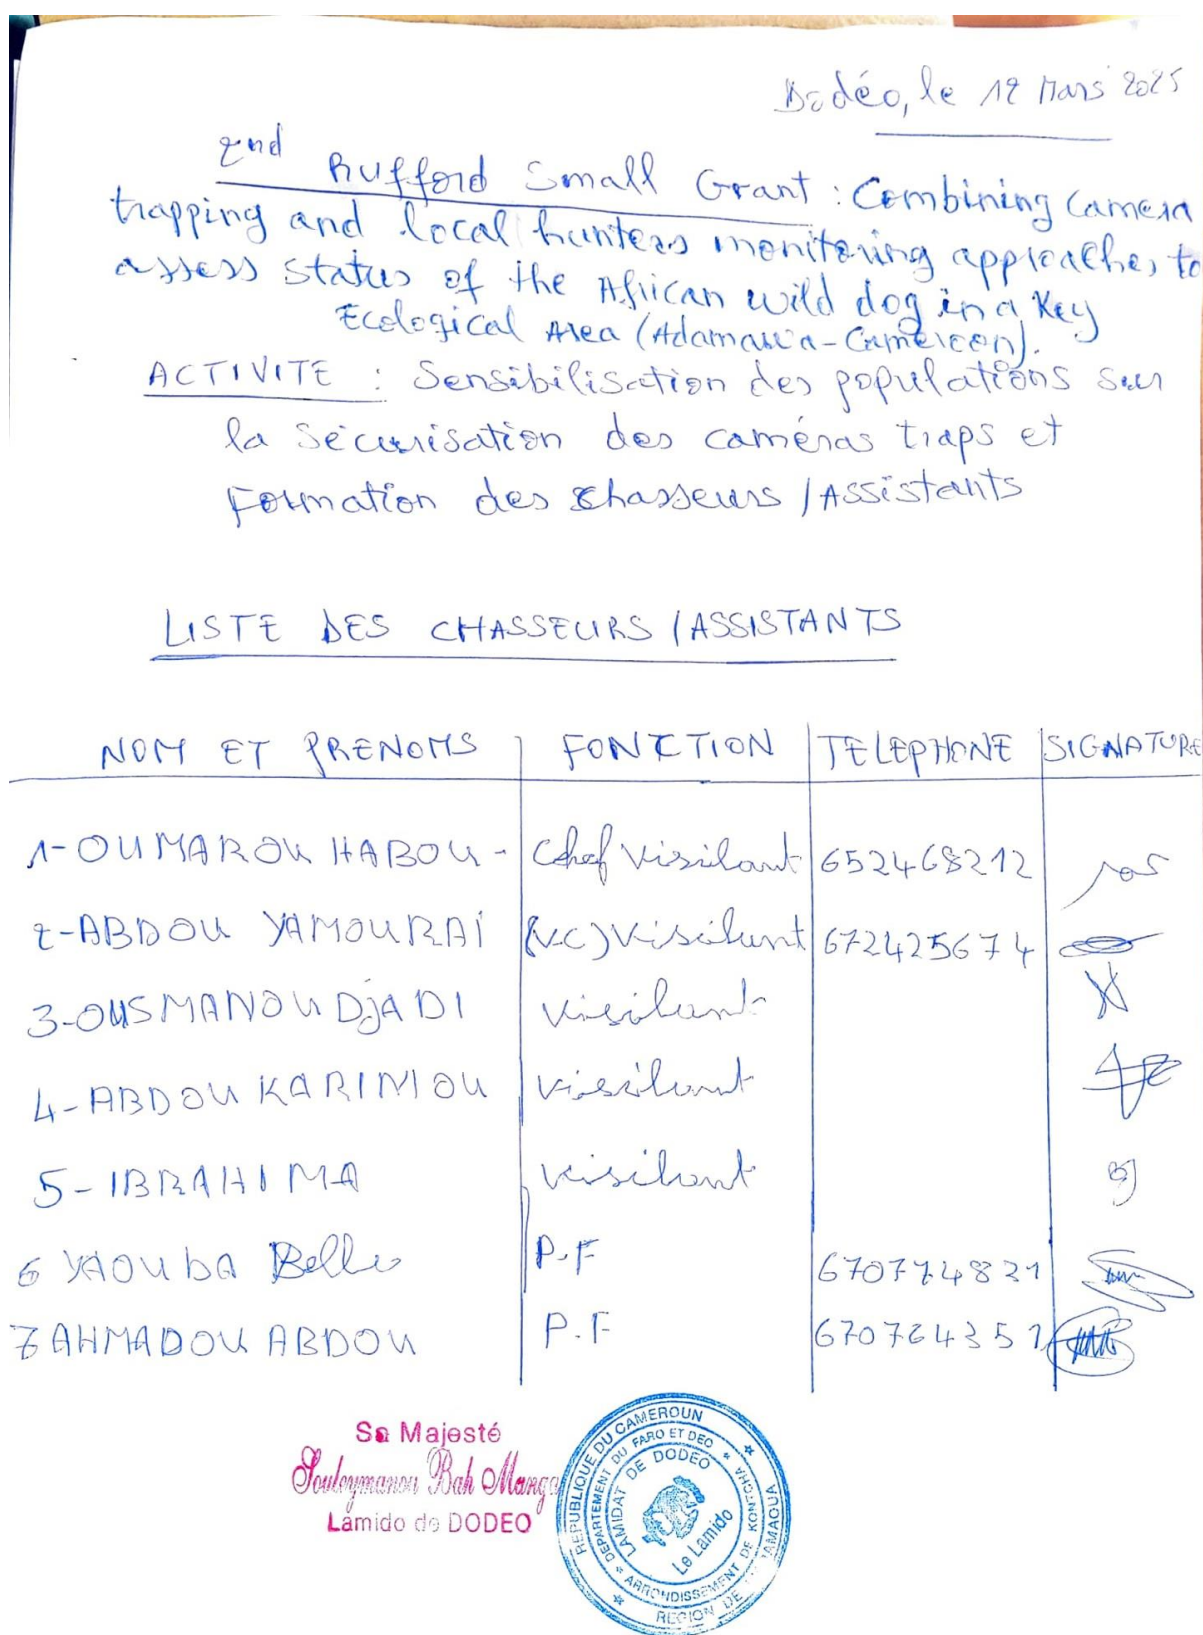 Dodéo, le 12 Mars 2025
2nd Rufford Small Grant : Combining Camera
trapping and local hunters monitoring approaches to
assess status of the African wild dog in a Key
Ecological Area (Adamawa-Cameroon).
ACTIVITE : Sensibilisation des populations sur
la sécurisation des caméras traps et
Formation des chasseurs / Assistants
LISTE DES CHASSEURS / ASSISTANTS
NOM ET PRENOMS FONCTION TELEPHONE SIGNATURE
1-OUMAROU HABOU - Chef visilant 652468212
2-ABDOU YAMOURAI (V.C) visilant 672425674
3-OUSMANOU DJADI visilant
4-ABDOU KARIMOU visilant
5-IBRAHIMA visilant
6 YAOUBA Bello P.F
7 AHMADOU ABDOU P.F
Sa Majesté
Souleymanou Bah Manga
Lamido de DODEO
REPUBLIQUE DU CAMEROUN
DEPARTEMENT DU FARO ET DEO
LAMIDAT DE DODEO
Le Lamido
ARRONDISSEMENT DE KONTCHA
REGION DE